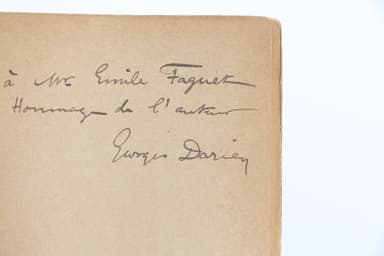 à Mr Emile Faguet
Hommage de l'auteur
Georges Darien